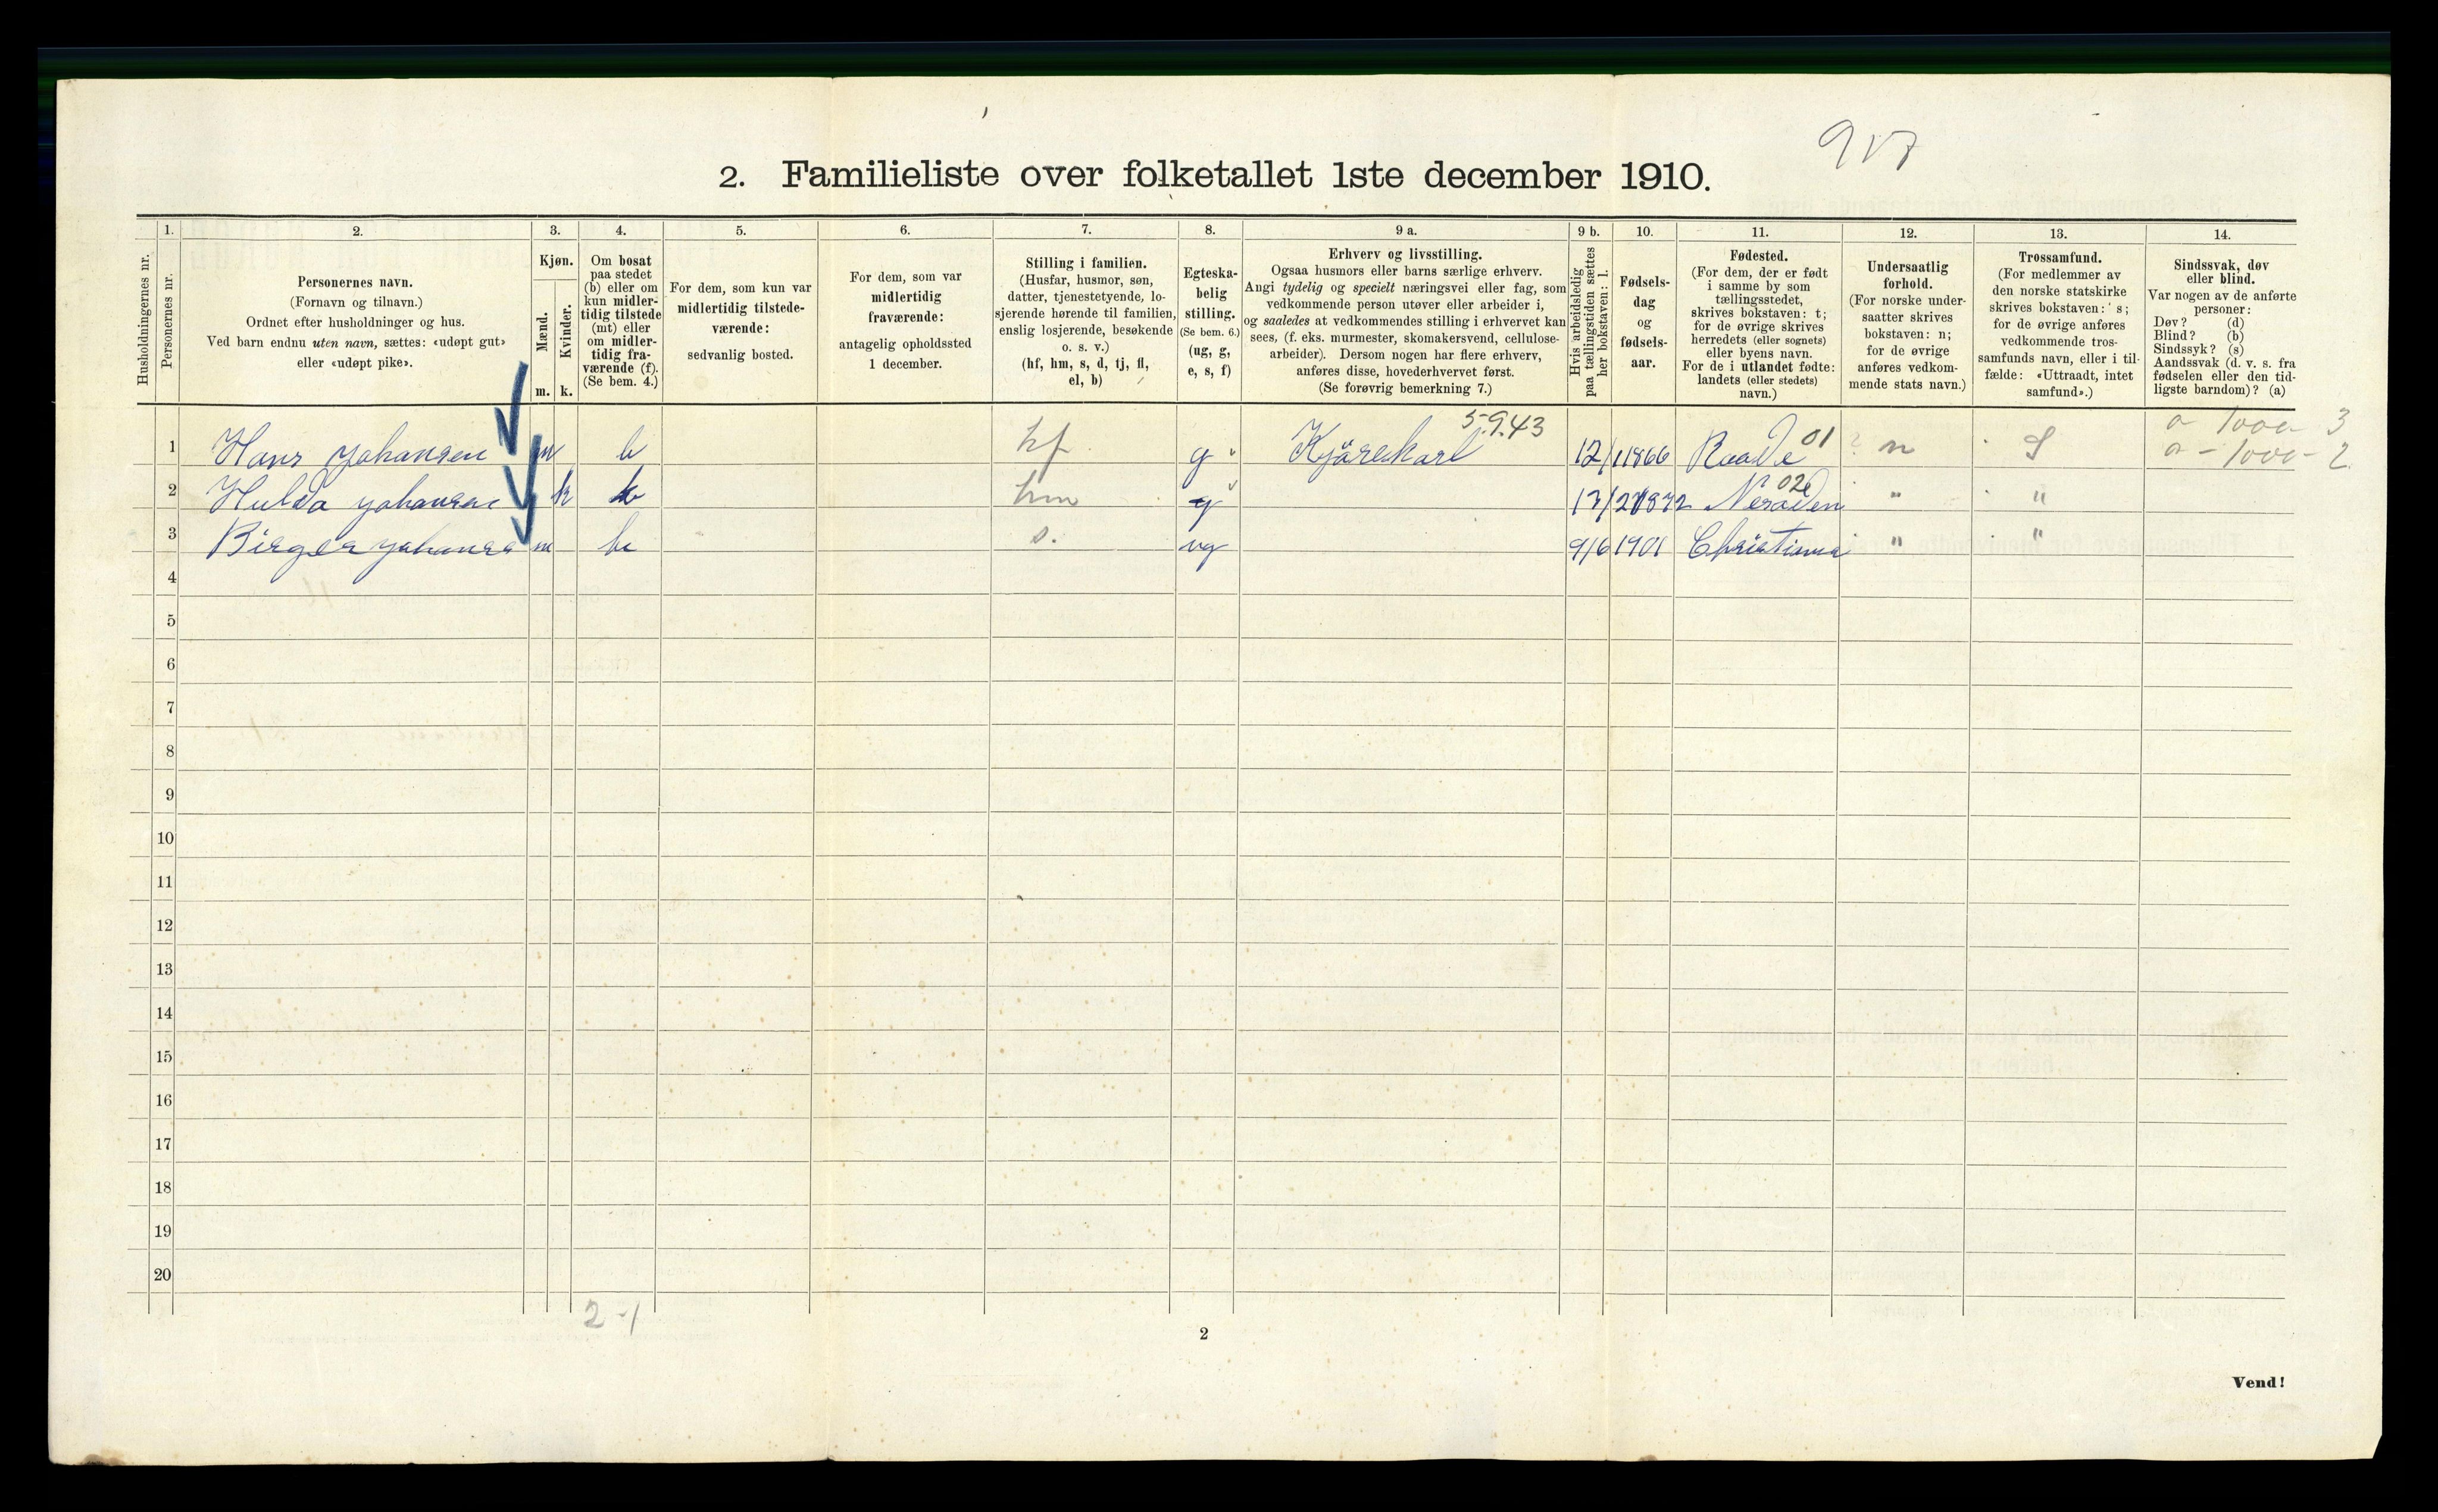 917
2. Familieliste over folketallet 1ste december 1910.
Husholdningernes nr.
1. Personernes nr.
2. Personernes navn.
(Fornavn og tilnavn.)
Ordnet efter husholdninger og hus.
Ved barn endnu uten navn, sættes: «udøpt gut»
eller «udøpt pike».
3. Kjøn.
Mænd. m.
Kvinder. k.
4. Om bosat
paa stedet
(b) eller om
kun midler-
tidig tilstede
(mt) eller
om midler-
tidig fra-
værende (f).
(Se bem. 4.)
5. For dem, som kun var
midlertidig tilstede-
værende:
sedvanlig bosted.
6. For dem, som var
midlertidig
fraværende:
antagelig opholdssted
1 december.
7. Stilling i familien.
(Husfar, husmor, søn,
datter, tjenestetyende, lo-
sjerende hørende til familien,
enslig losjerende, besøkende
o. s. v.)
(hf, hm, s, d, tj, fl,
el, b)
8. Egteska-
belig
stilling.
(Se bem. 6.)
(ug, g,
e, s, f)
9 a. Erhverv og livsstilling.
Ogsaa husmors eller barns særlige erhverv.
Angi tydelig og specielt næringsvei eller fag, som
vedkommende person utøver eller arbeider i,
og saaledes at vedkommendes stilling i erhvervet kan
sees, (f. eks. murmester, skomakersvend, cellulose-
arbeider). Dersom nogen har flere erhverv,
anføres disse, hovederhvervet først.
(Se forøvrig bemerkning 7.)
9 b. Hvis arbeidsledig
paa tællingstiden sættes
her bokstaven: l.
10. Fødsels-
dag
og
fødsels-
aar.
11. Fødested.
(For dem, der er født
i samme by som
tællingsstedet,
skrives bokstaven: t;
for de øvrige skrives
herredets (eller sognets)
eller byens navn.
For de i utlandet fødte:
landets (eller stedets)
navn.)
12. Undersaatlig
forhold.
(For norske under-
saatter skrives
bokstaven: n;
for de øvrige
anføres vedkom-
mende stats navn.)
13. Trossamfund.
(For medlemmer av
den norske statskirke
skrives bokstaven: s;
for de øvrige anføres
vedkommende tros-
samfunds navn, eller i til-
fælde: «Uttraadt, intet
samfund».)
14. Sindssvak, døv
eller blind.
Var nogen av de anførte
personer:
Døv? (d)
Blind? (b)
Sindssyk? (s)
Aandssvak (d. v. s. fra
fødselen eller den tid-
ligste barndom)? (a)
5.9.43 01 a 1000 3
1 Hans Johansen m b hf g Kjørekarl 12/1 1866 Raade n S a - 1000 - 2.
02
2 Hulda Johansen k b hm g 13/2 1872 Nesodden " "
3 Birger Johansen m b s. ug 9/6 1901 Christiania " "
4
5
6
7
8
9
10
11
12
13
14
15
16
17
18
19
20
2-1
2
Vend!